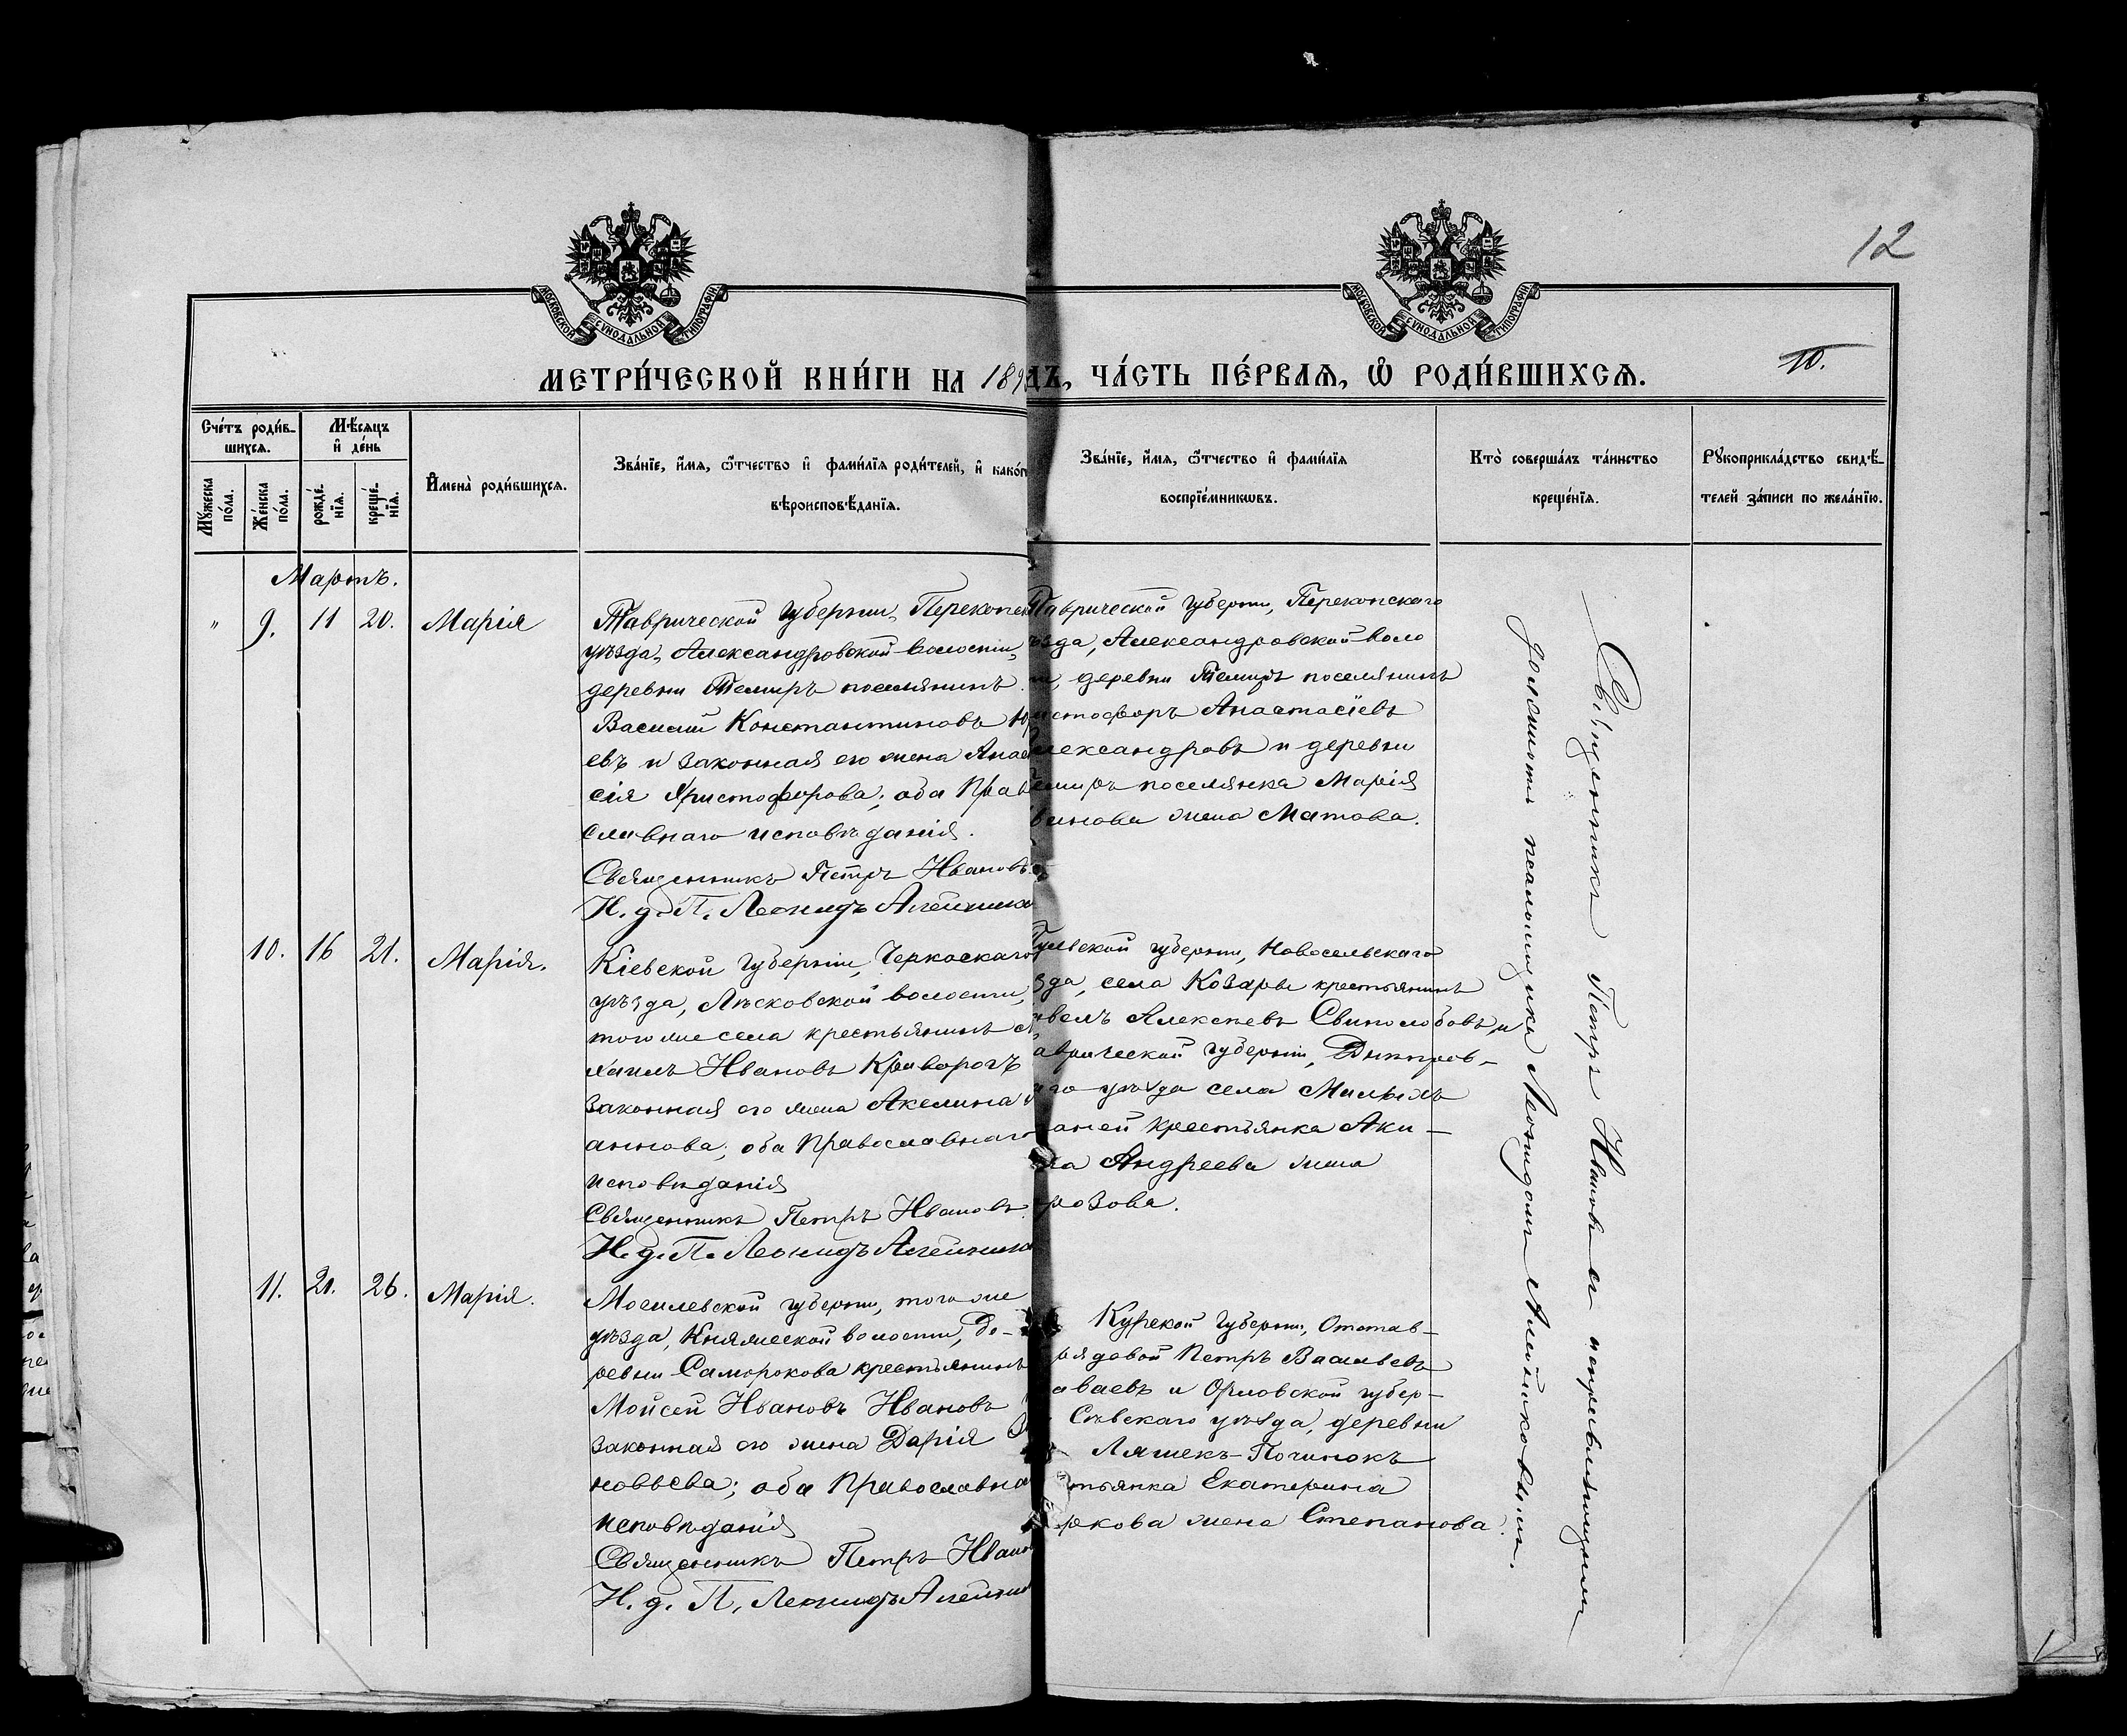 12
МОСКОВСКОЙ СУНОДАЛЬНОЙ ТИПОГРАФІИ
МОСКОВСКОЙ СУНОДАЛЬНОЙ ТИПОГРАФІИ
МЕТРИ́ЧЕСКОЙ КНИ́ГИ НА 189
ДЪ, ЧА́СТЬ ПЕ́РВАЯ, Ѡ РОДИ́ВШИХСЯ.
10.
Сче́тъ роди́в-
шихся.
Мѣ́сяцъ
и҆ де́нь
Мꙋ́жеска по́ла.
Же́нска по́ла.
рожде́-
нїя.
креще́-
нїя.
И҆мена̀ роди́вшихся.
Зва́нїе, и҆́мя, ѻ҆́тчество и҆ фами́лїя роди́телей, и҆ како́г
вѣроисповѣ́данїя.
Зва́нїе, и҆́мя, ѻ҆́тчество и҆ фами́лїя
воспрїе́мникѡвъ.
Кто̀ соверша́лъ та́инство
креще́нїя.
Рꙋкоприкла́дство свидѣ́-
телей за́писи по жела́нїю.
Мартъ.
" 9. 11 20. Марія
Таврической губерніи, Перекопск
уѣзда, Александровской волости,
деревни Темиръ поселянинъ
Василій Константиновъ Юр
евъ и законная его жена Анас
сія Христофорова; оба Прав
славнаго исповѣданія.
Священникъ Петръ Ивановъ
И. д. П. Леонидъ Алейник
Таврической губерніи, Перекопскаго
ѣзда, Александровской воло
ти, деревни Темиръ поселянинъ
истофоръ Анастасіевъ
лександровъ и деревни
емиръ поселянка Марія
жена Матова.
10. 16 21. Марія.
Кіевской губерніи, Черкаскаго
уѣзда, Лѣсковской волости,
того же села крестьянинъ
хаилъ Ивановъ Криворогъ
законная его жена Акелина
аннова; оба Православнаго
исповѣданія
Священникъ Петръ Ивановъ
И. д. П. Леонидъ Алейник
Тульской губерніи, Новосельскаго
зда, села Козарь крестьянинъ
авелъ Алексѣевъ Свинолобовъ и
аврической губерніи, Днѣпров-
аго уѣзда села Малыхъ
аней крестьянка Аки-
на Андреева жена
розова.
11. 21. 26. Марія.
Могилевской губерніи, того же
уѣзда, Княжеской волости, де-
ревни Саморокова крестьянинъ
Мойсей Ивановъ Ивановъ
законная его жена Дарія
новьева; оба Православна
исповѣданія
Священникъ Петръ Ивано
И. д. П. Леонидъ Алейни
Курской губерніи, Отстав-
рядовой Петръ Васильевъ
аваевъ и Орловской губер-
Сѣвскаго уѣзда, деревни
Ляшекъ-Починокъ
тьянка Екатерина
ркова жена Степанова.
Священникъ Петръ Ивановъ съ исправляющимъ
должность псаломщика Леонидомъ Алейниковымъ.